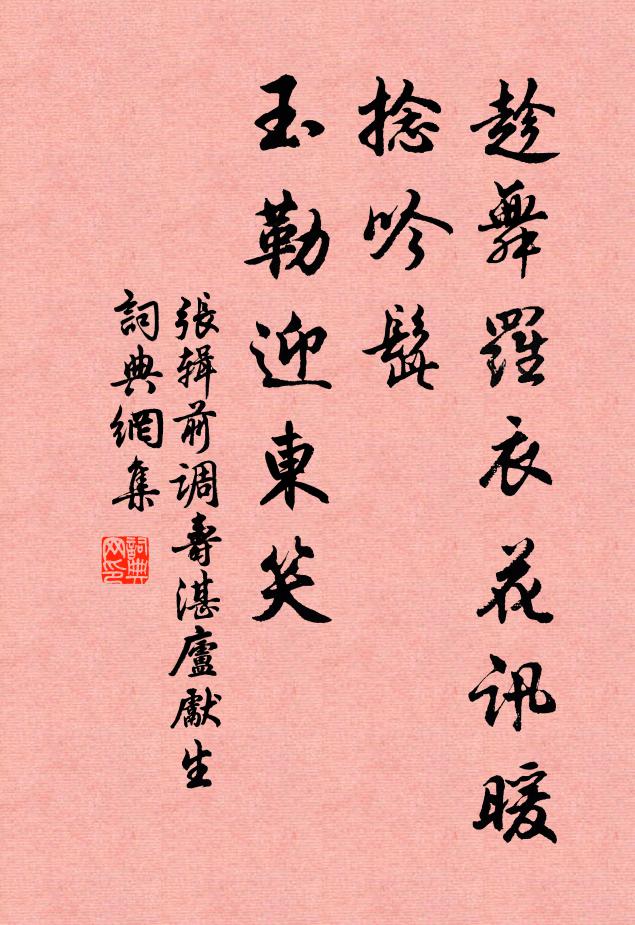 趁舞羅衣花訊暖
捻吟髭
玉勒迎東笑
張辑前调壽湛廬獻生
詞典網集
詞典网印